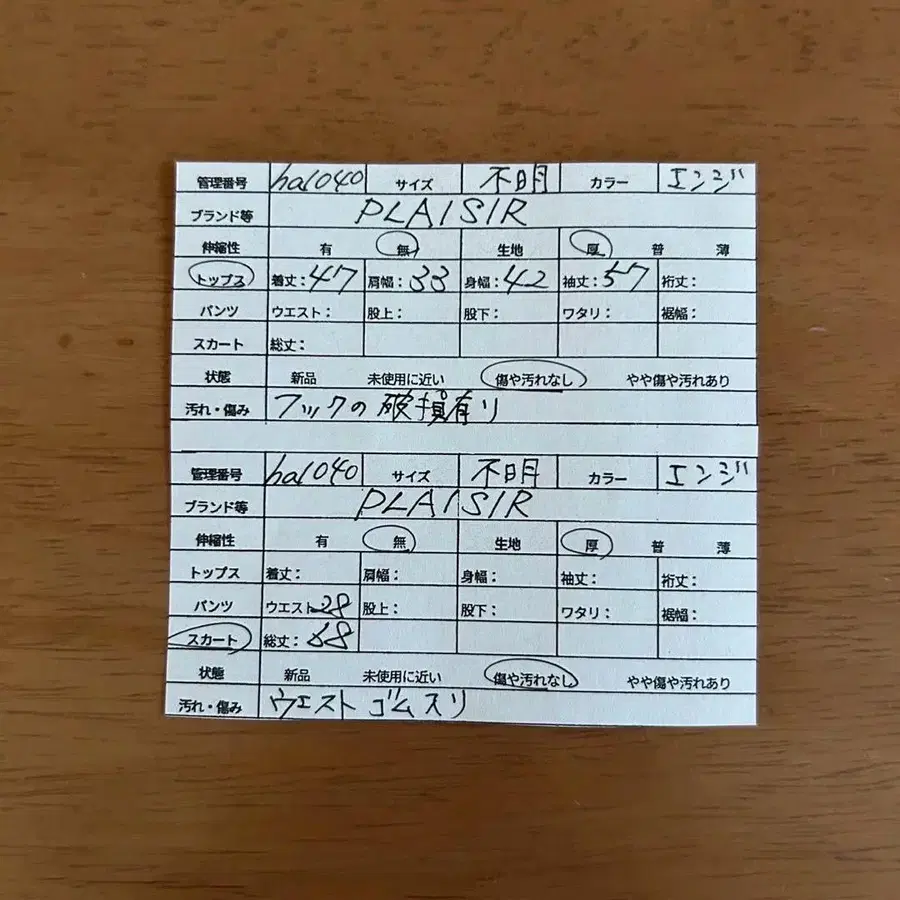 管理番号 hal040 サイズ 不明 カラー エンジ
ブランド等 PLAISIR
伸縮性 有 無 生地 厚 普 薄
トップス 着丈:47 肩幅:33 身幅:42 袖丈:57 裄丈:
パンツ ウエスト: 股上: 股下: ワタリ: 裾幅:
スカート 総丈:
状態 新品 未使用に近い 傷や汚れなし やや傷や汚れあり
汚れ・傷み フックの破損有り
管理番号 hal040 サイズ 不明 カラー エンジ
ブランド等 PLAISIR
伸縮性 有 無 生地 厚 普 薄
トップス 着丈: 肩幅: 身幅: 袖丈: 裄丈:
パンツ ウエスト 28 股上: 股下: ワタリ: 裾幅:
スカート 総丈:
状態 新品 未使用に近い 傷や汚れなし やや傷や汚れあり
汚れ・傷み ウエストゴムスリ